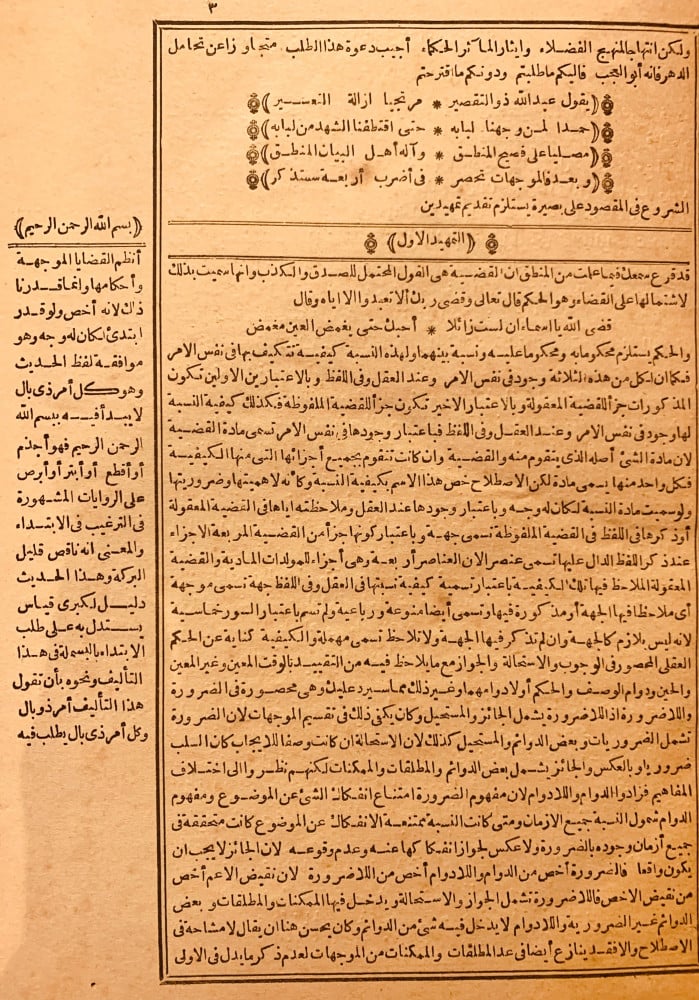 ٣
ولكن انتهاجا لمنهج الفضلاء وايثار المآثر الحكماء أجيب دعوة هذا الطلب متجاوزا عن تحامل
الدهر فانه أبو العجب فاليكم ما طلبتم ودونكم ما اقترحتم
﴿يقول عبد الله ذو التقصير * مرتجيا ازالة التعسير﴾
﴿حمدا لمن وجهنا لبابه * حتى اقتطفنا الشهد من لبابه﴾
﴿مصليا على فصيح المنطق * وآله أهل البيان المنطق﴾
﴿وبعد فالموجهات تحصر * فى أضرب أربعة ستذكر﴾
الشروع فى المقصود على بصيرة يستلزم تقديم تمهيدين
﴿التمهيد الاول﴾
قد قرع سمعك فيما علمت من المنطق ان القضية هى القول المحتمل للصدق والكذب وانها سميت بذلك
لاشتمالها على القضاء وهو الحكم قال تعالى وقضى ربك ألا تعبدوا الا اياه وقال
قضى الله يا أسماء ان لست زائلا * أحبك حتى يغمض العين مغمض
والحكم يستلزم محكوما به ومحكوما عليه ونسبة بينهما ولهذه النسبة كيفية تتكيف بها فى نفس الامر
فكما ان لكل من هذه الثلاثة وجود فى نفس الامر وعند العقل وفى اللفظ وبالاعتبارين الاولين تكون
المذكورات جزأ للقضية المعقولة وبالاعتبار الاخير تكون جزأ للقضية الملفوظة فكذلك كيفية النسبة
لها وجود فى نفس الامر وعند العقل وفى اللفظ فباعتبار وجودها فى نفس الامر تسمى مادة القضية
لان مادة الشئ أصله الذى يتقوم منه والقضية وان كانت تتقوم بجميع أجزائها التى منها الكيفية
فكل واحد منها يسمى مادة لكن الاصطلاح خص هذا الاسم بكيفية النسبة وكأنه لاهميتها وضروريتها
ولو سميت مادة النسبة لكان له وجه وباعتبار وجودها عند العقل وملاحظته اياها فى القضية المعقولة
أو ذكرها فى اللفظ فى القضية الملفوظة تسمى جهة وباعتبار كونها جزأ من القضية المربعة الاجزاء
عند ذكر اللفظ الدال عليها تسمى عنصرا لان العناصر أربعة وهى أجزاء للمولدات المادية والقضية
المعقولة الملاحظ فيها تلك الكيفية باعتبار تسمية كيفية نسبتها فى العقل وفى اللفظ جهة تسمى موجهة
أى ملاحظا فيها الجهة أو مذكورة فيها وتسمى أيضا منوعة ورباعية ولم تسم باعتبار السور خماسية
لانه ليس بلازم كالجهة وان لم تذكر فيها الجهة ولا تلاحظ تسمى مهملة والكيفية كناية عن الحكم
العقلى المحصور فى الوجوب والاستحالة والجواز مع ما يلاحظ فيه من التقييد بالوقت المعين وغير المعين
والحين ودوام الوصف والحكم أولا دوامهما وغير ذلك مما سيرد عليك وهى محصورة فى الضرورة
واللاضرورة اذ اللاضرورة يشمل الجائز والمستحيل وكان يكفى ذلك فى تقسيم الموجهات لان الضرورة
تشمل الضروريات وبعض الدوائم والمستحيل كذلك لان الاستحالة ان كانت وصفا للايجاب كان السلب
ضروريا وبالعكس والجائز يشمل بعض الدوائم والمطلقات والممكنات لكنهم نظروا الى اختلاف
المفاهيم فزادوا الدوام واللادوام لان مفهوم الضرورة امتناع انفكاك الشئ عن الموضوع ومفهوم
الدوام شمول النسبة جميع الازمان ومتى كانت النسبة ممتنعة الانفكاك عن الموضوع كانت متحققة فى
جميع أزمان وجوده بالضرورة ولا عكس لجواز انفكاكها عنه وعدم وقوعه لان الجائز لا يجب ان
يكون واقعا فالضرورة أخص من الدوام واللادوام أخص من اللاضرورة لان نقيض الاعم أخص
من نقيض الاخص فاللاضرورة تشمل الجواز والاستحالة ويدخل فيها الممكنات والمطلقات وبعض
الدوائم غير الضرورية واللادوام لا يدخل فيه شئ من الدوائم وكان يحسن هنا ان يقال لا مشاحة فى
الاصطلاح والا فقد ينازع أيضا فى عد المطلقات والممكنات من الموجهات لعدم ذكر ما يدل فى الاولى
﴿بسم الله الرحمن الرحيم﴾
أنظم القضايا الموجهة
وأحكامها وانما قدرنا
ذلك لانه أخص ولو قدر
ابتدئ لكان له وجه وهو
موافقة لفظ الحديث
وهو كل أمر ذى بال
لا يبدأ فيه ببسم الله
الرحمن الرحيم فهو أجذم
أو أقطع أو أبتر أو أبرص
على الروايات المشهورة
فى الترغيب فى الابتداء
والمعنى انه ناقص قليل
البركة وهذا الحديث
دليل لكبرى قياس
يستدل به على طلب
الابتداء بالبسملة فى هذا
التأليف ونحوه بأن تقول
هذا التأليف أمر ذو بال
وكل أمر ذى بال يطلب فيه